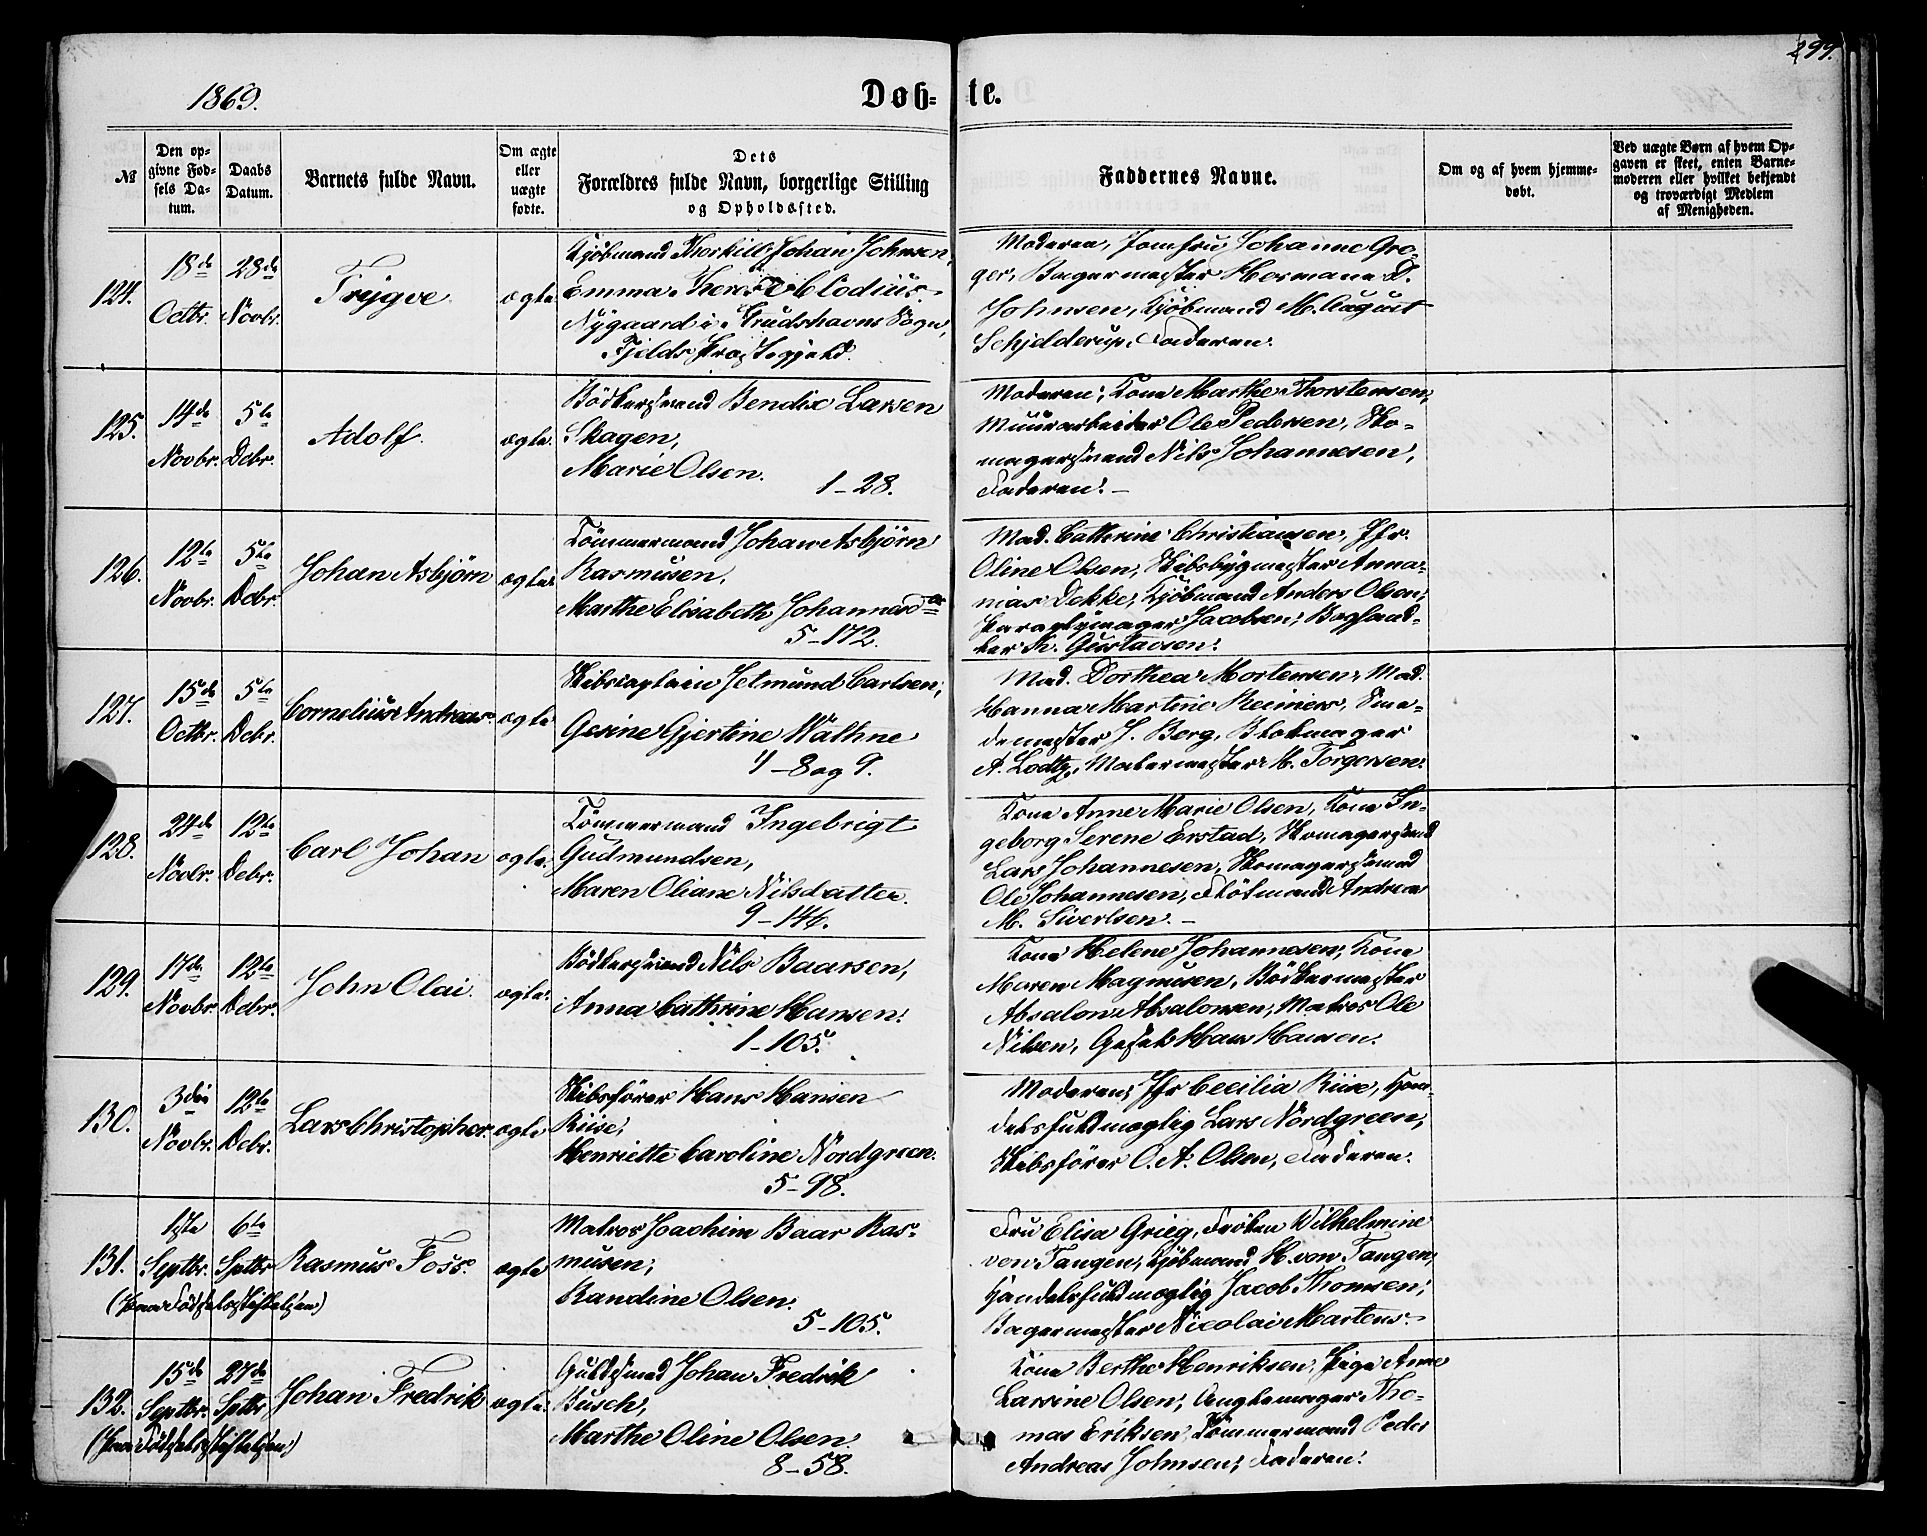 299.
1869.
Døb- te.
№
Den op-
givne Fød-
sels Da-
tum.
Daabs
Datum.
Barnets fulde Navn.
Om ægte
eller
uægte
fødte.
Dets
Forældres fulde Navn, borgerlige Stilling
og Opholdssted.
Faddernes Navne.
Om og af hvem hjemme-
døbt.
Ved uægte Børn af hvem Op-
gaven er skeet, enten Barne-
moderen eller hvilket bekjendt
og troværdigt Medlem
af Menigheden.
124.
18de
Octbr.
28de
Novbr.
Trygve
ægte
Kjøbmand Thorkild Johan Johnsen,
Emma Therese Clodius.
Nygaard i Sogn,
Fjelds Præstegjeld.
Moderen, Jomfru Johanne Grö-
ger, Bagermester Hermann D.
Johnsen, Kjøbmand M. August
Schjelderup, Faderen.
125.
14de
Novbr.
5te
Debr.
Adolf.
ægte.
Bödkersvend Bendix Larsen
Skagen,
Marie Olsen.
1-28.
Moderen, Kone Marthe Thorstensen,
Muurarbeider Ole Pedersen, Sko-
magersvend Nils Johannesen,
Faderen. -
126.
12te
Novbr.
5te
Debr.
Johan Asbjörn
ægte.
Tömmermand Johan Asbjörn
Rasmusen,
Marthe Elisabeth Johannesdter
5-172.
Mad. Cathrine Christiansen, Jfr.
Oline Olsen, Skibsbygmester Anna-
nias Dekke, Kjøbmand Anders Olsen,
Paraplymager Jacobsen, Boghand-
ler Fr. Gustavsen.
127.
15de
Octbr.
5te
Debr.
Cornelius Andreas
ægte
Skibscaptain Jetmund Carlsen,
Gesine Gjertine Wathne
4-8 og 9.
Mad. Dorthea Mortensen, Mad.
Hanna Martine Reimers, Sme-
demester J. Berg, Blokmager
A. Lodtz, Malermester H. Torgersen.
128.
24de
Novbr.
12te
Debr.
Carl Johan
ægte.
Tömmermand Ingebrigt
Gudmundsen,
Maren Oliane Nilsdatter.
9-146.
Kone Anne Marie Olsen, Kone In-
geborg Serene Erstad, Skomagersvend
Lars Johannesen, Skomagersvend
Ole Johannesen, Flötmand Andreas
M. Sivertsen. -
129.
17de
Novbr.
12te
Debr.
John Olai.
ægte.
Bödkersvend Nils Baarsen,
Anna Cathrine Hansen.
1-105.
Kone Helene Johannesen, Kone
Maren Magnusen, Bödkermester
Absalon Absalonsen, Matros Ole
Nilsen, Gesel Hans Hansen.
130.
3die
Novbr.
12te
Debr.
Lars Christopher.
ægte
Skibsförer Hans Hansen
Riise,
Henriette Caroline Nordgreen.
5-98.
Moderen, Jfr Cecilia Riise, Han-
delsfuldmægtig Lars Nordgreen,
Skibsförer O. A. Olsen, Faderen.
131.
1ste
Septbr.
6te
Septbr
(Paa Födselsstiftelsen)
Rasmus Foss.
ægte
Matros Joachim Baar Ras-
musen,
Randine Olsen.
5-105.
Fru Elisa Grieg, Fröken Wilhelmine
von Tangen, Kjøbmand H. von Tangen,
Handelsfuldmægtig Jacob Thomsen,
Bagermester Nicolai Martens.
132.
15de
Septbr.
27de
Septbr.
(Paa Födselsstiftelsen)
Johan Fredrik
ægte.
Guldsmed Johan Fredrik
Busch,
Marthe Oline Olsen.
8-58.
Kone Berthe Henriksen, Pige Anne
Larsine Olsen, Thо-
mas Eriksen, Tömmermand Peder
Andreas Johnsen, Faderen.